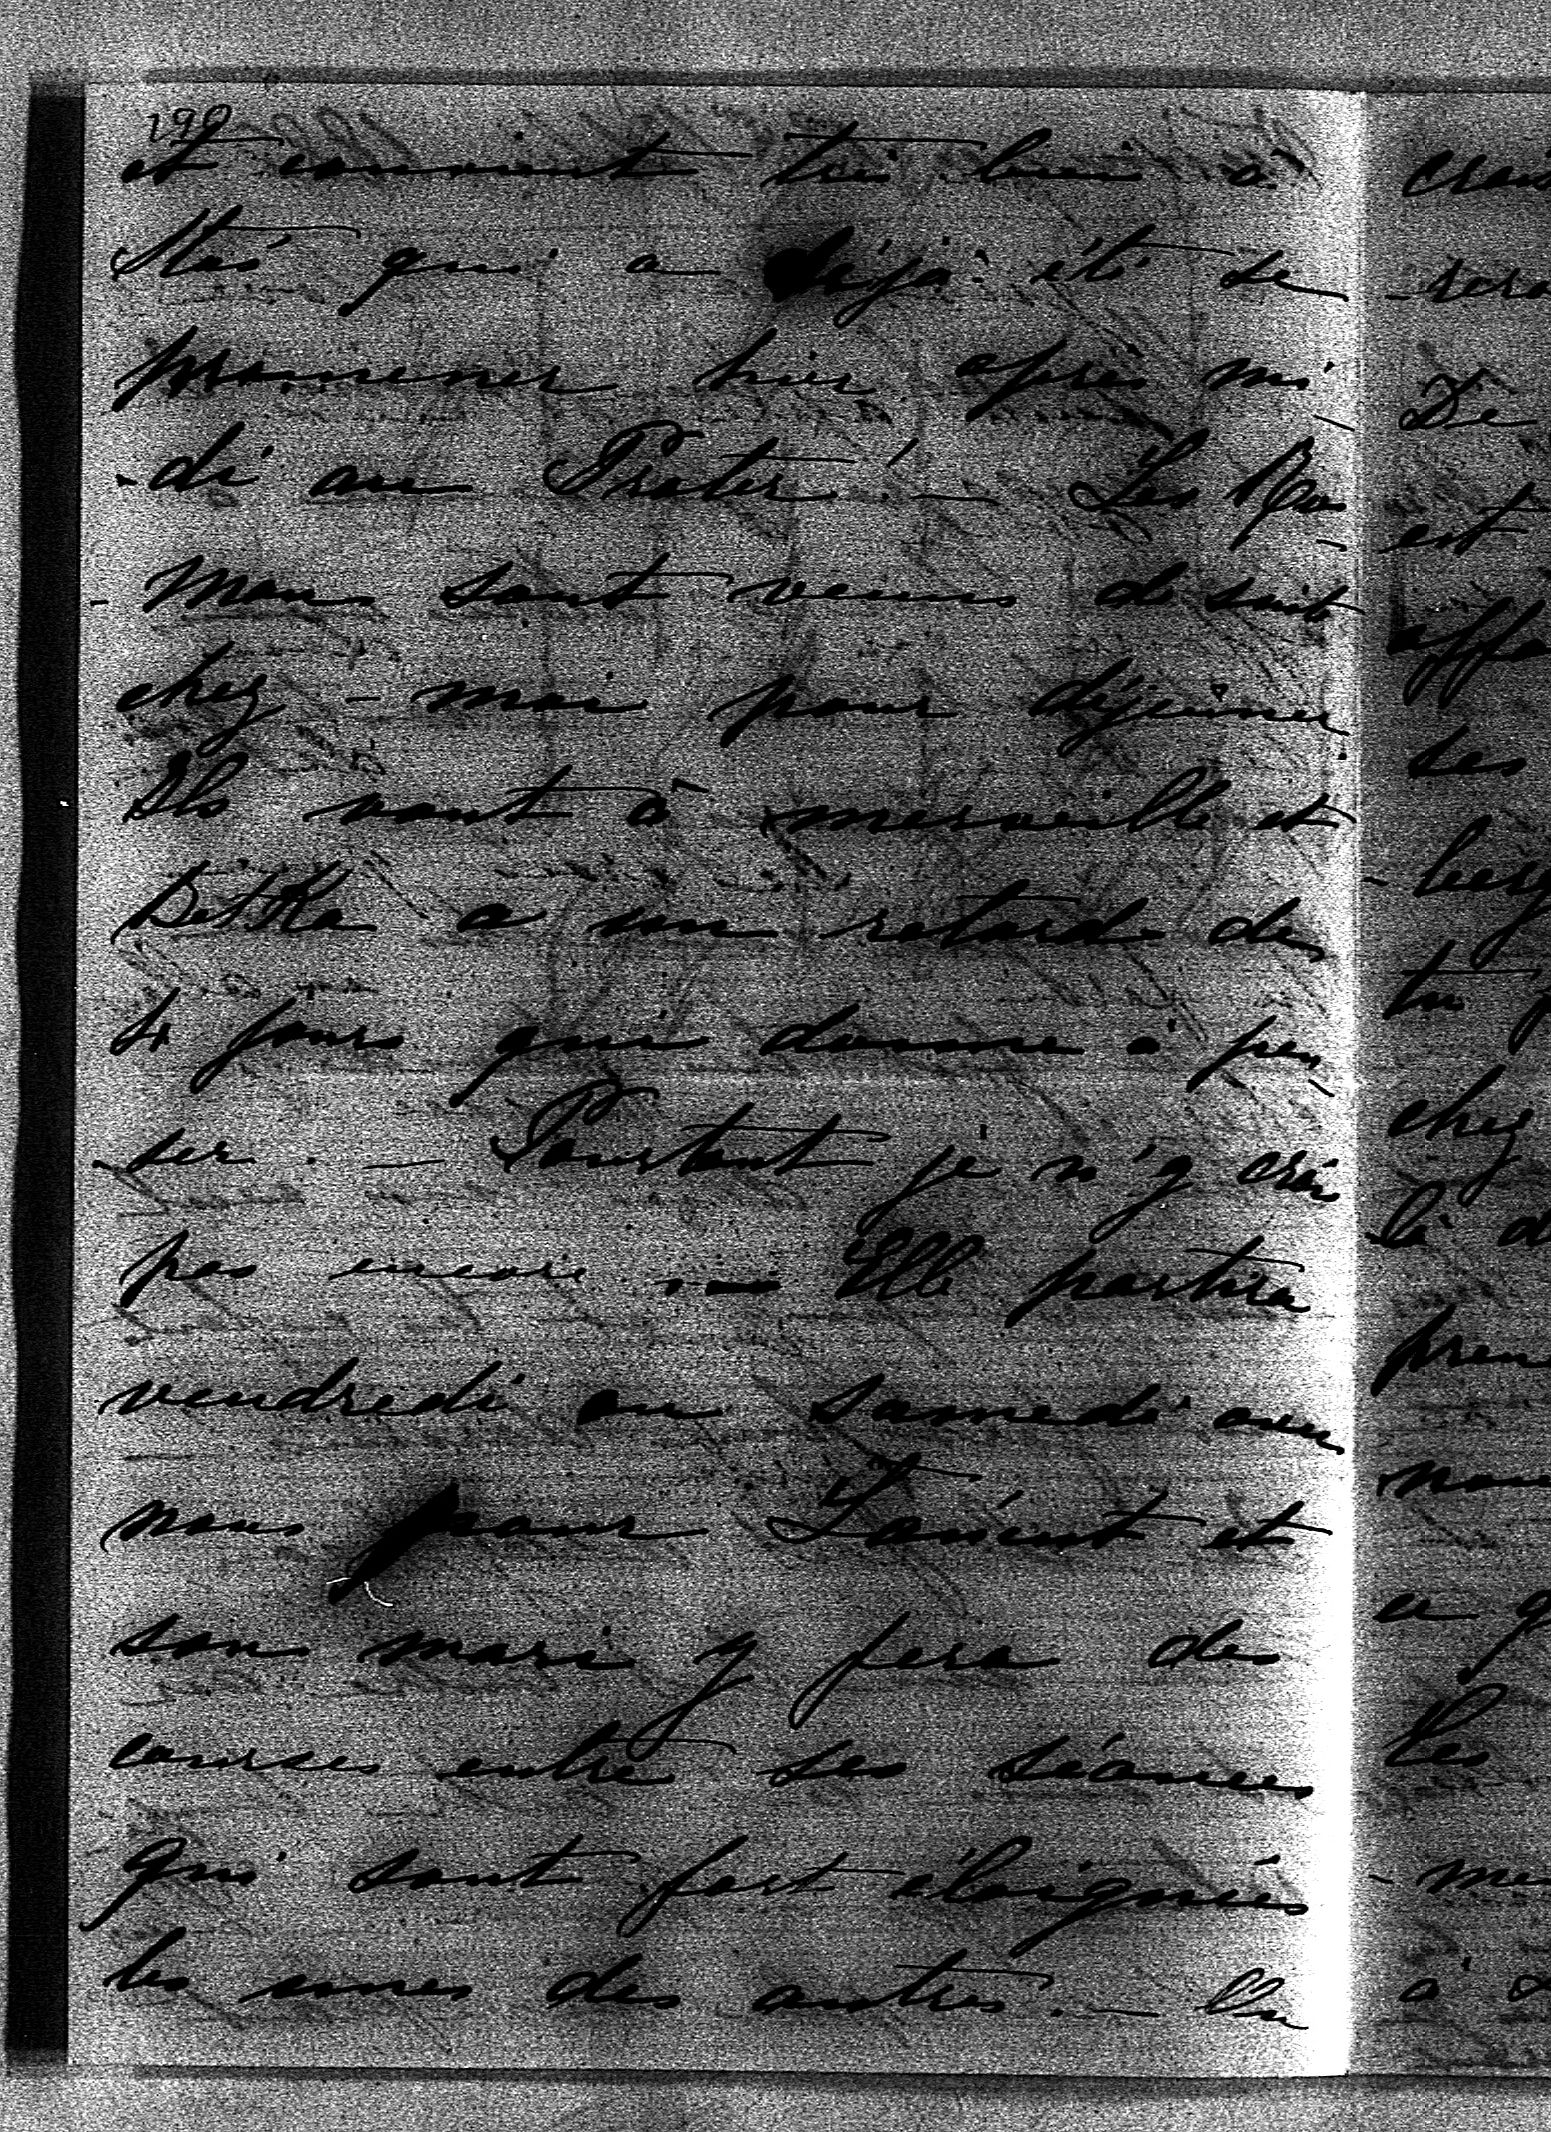 190
et convient très bien à
Stas qui a déjà été se
promener hier après mi-
-di au Prater. — Les Ro-
-man sont venus de suite
chez-moi pour déjeuner
Ils vont à merveille et
Betka a un retard de
4 jours qui donne à pen-
-ser. — Pourtant je n'y crois
pas encore — Elle partira
vendredi ou samedi avec
nous pour Łańcut et
son mari y fera des
courses entre ses séances
qui sont fort éloignées
les unes des autres. — On